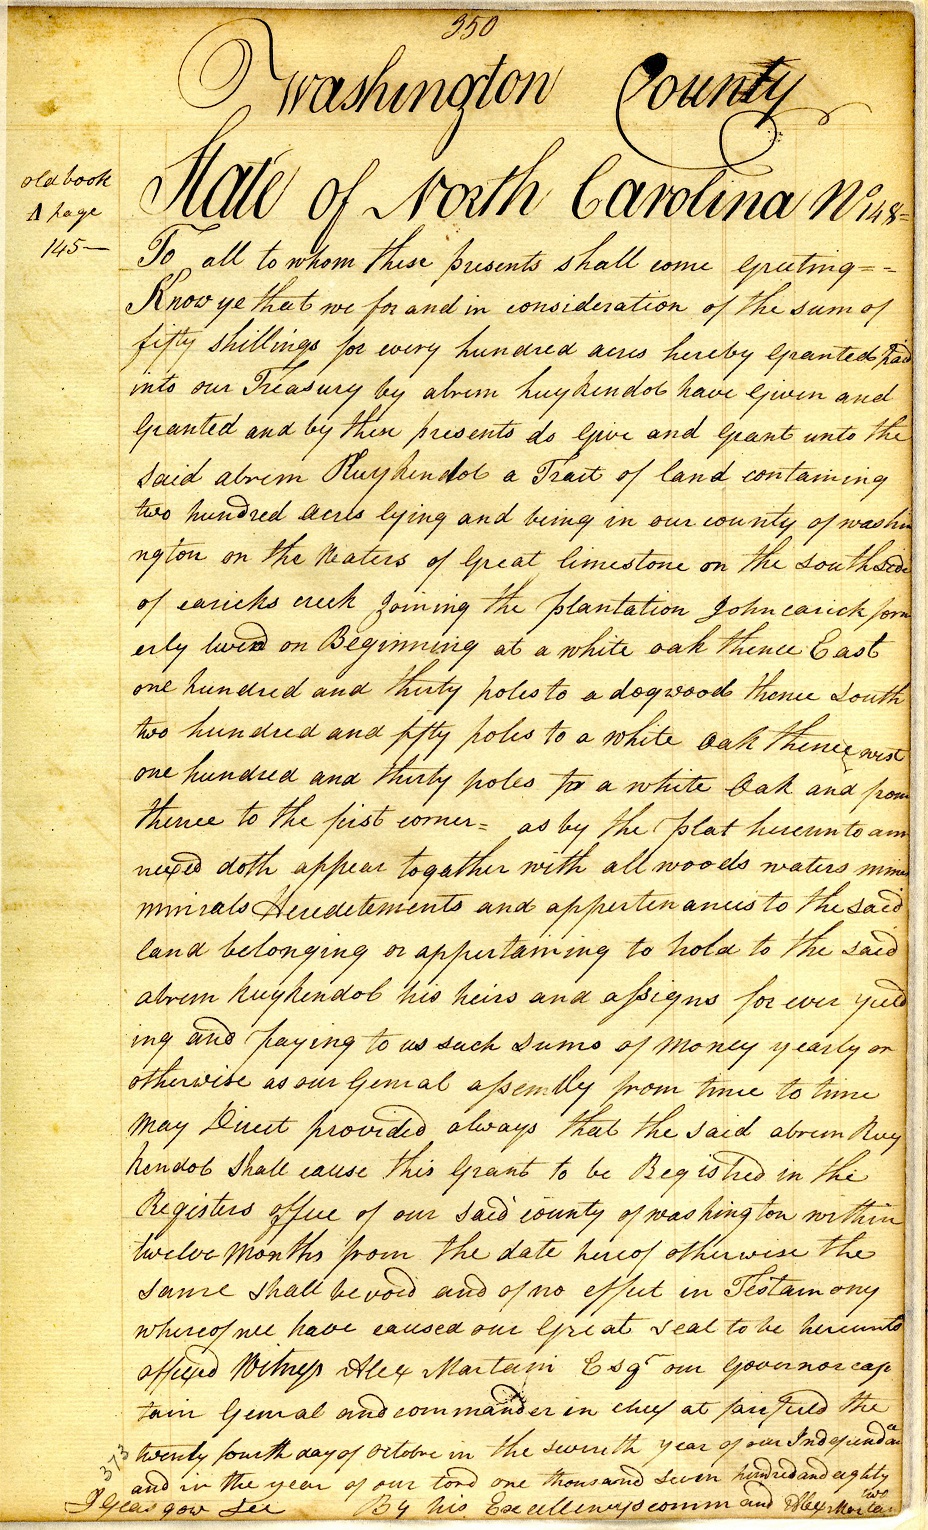 350
Washington County
State of North Carolina No 148=
old book
A page
145—
To all to whom these presents shall come Greeting= =
Know ye that we for and in consideration of the sum of
fifty shillings for every hundred acres hereby Granted paid
into our Treasury by abrem kuykendol have Given and
Granted and by these presents do Give and Grant unto the
said abrem Kuykendol a Tract of land containing
two hundred acres lying and being in our county of washi
ngton on the Waters of Great limestone on the south side
of caricks creek Joining the plantation John carick form
erly lived on Beginning at a white oak thence East
one hundred and thirty poles to a dogwood thence South
two hundred and fifty poles to a white Oak thence west
one hundred and thirty poles to a white Oak and from
thence to the first corner= as by the plat hereunto ann
nexed doth appear together with all woods waters mines
minrals Heredetements and appertenances to the said
land belonging or appertaining to hold to the said
abrem kuykendol his heirs and assigns for ever yield
ing and paying to us such sums of money yearly or
otherwise as our Genral assembly from time to time
may Direct provided always that the said abrem Kuy
kendol shall cause this Grant to be Registred in the
Registers office of our said county of washington within
twelve months from the date hereof otherwise the
same shall be void and of no effect in Testamony
whereof we have caused our Great seal to be hereunto
affixed Witness Alex Martain Esqr our Governor cap
tain Genral and commander in chief at the
twenty fourth day of Octobre in the seventh year of our Independance
and in the year of our lord one thousand seven hundred and eighty
two
373
J Glasgow Sec By his Excellencys command Alex Martain